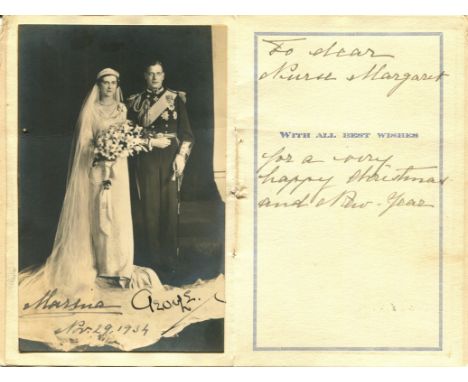 Marina George
Nov. 29. 1934
To dear
Nurse Margaret
WITH ALL BEST WISHES
for a very
happy Christmas
and New-Year